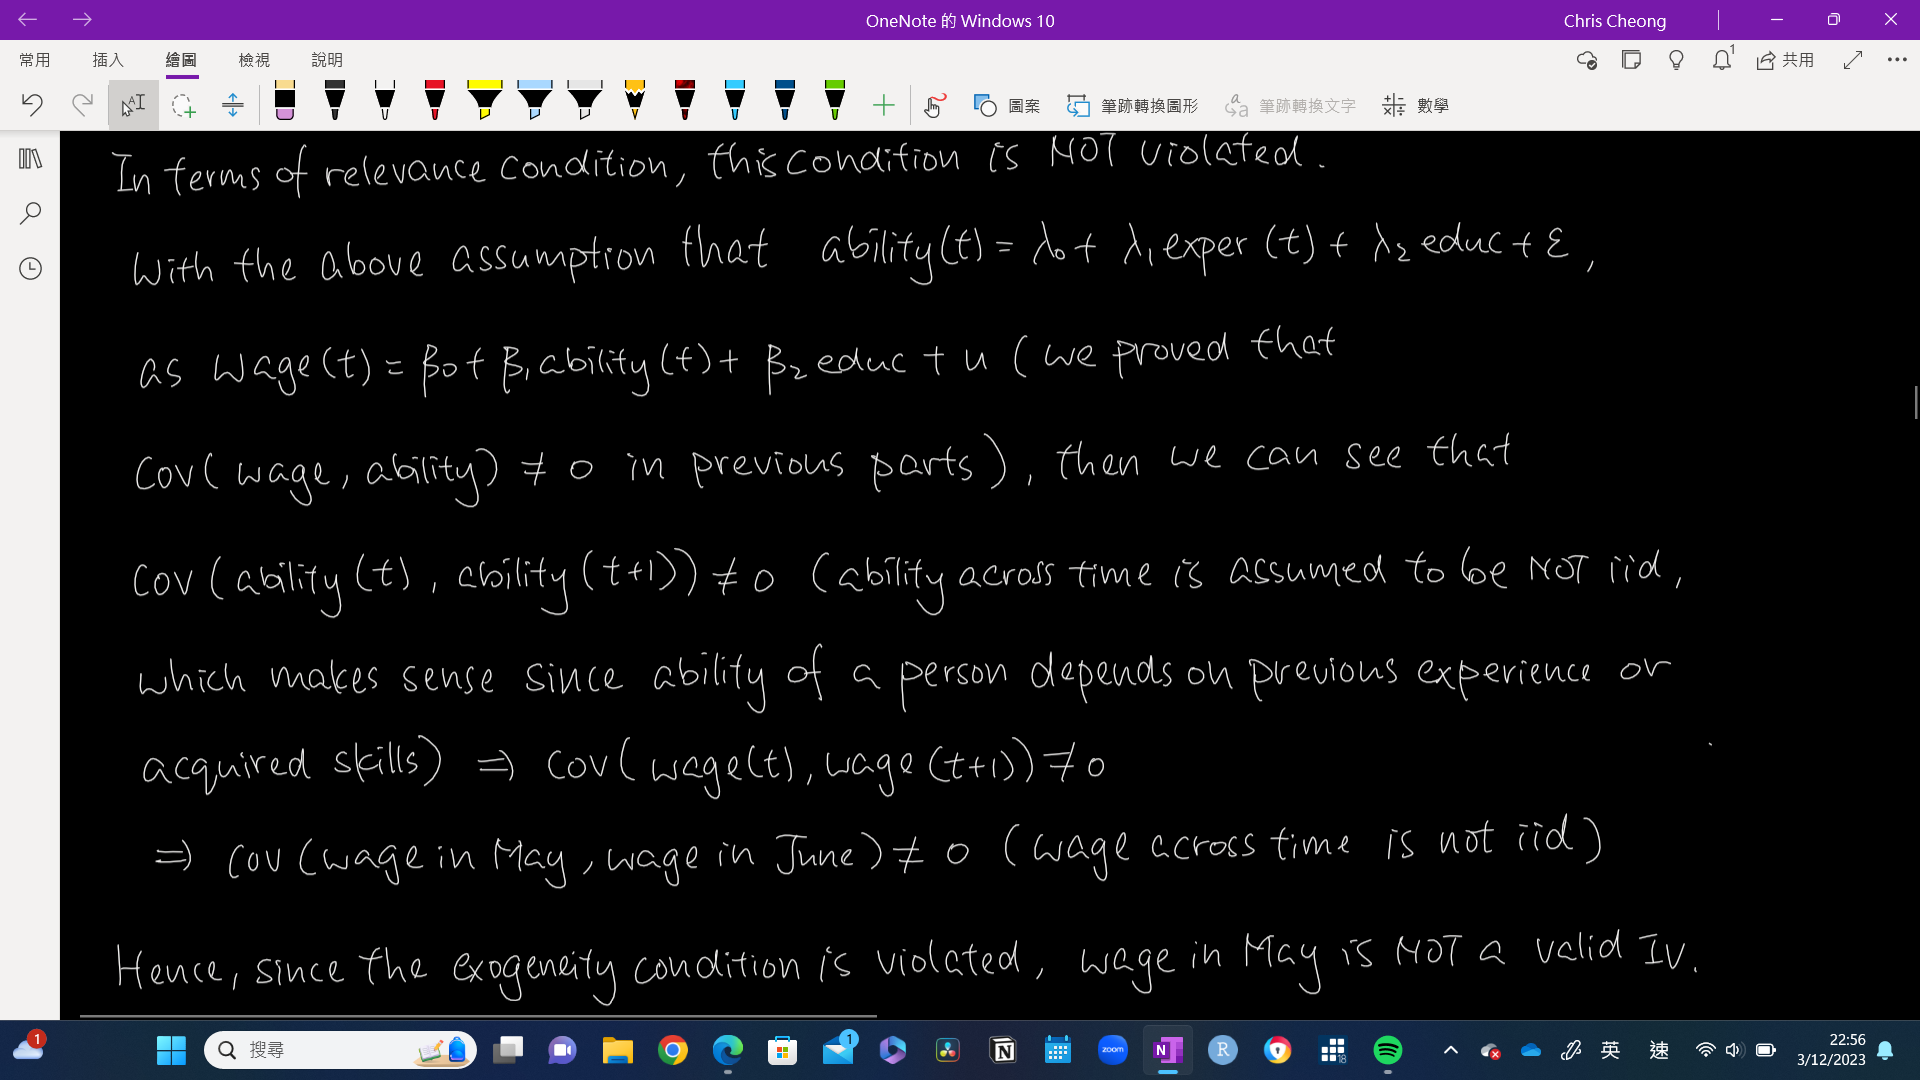 OneNote 的 Windows 10
Chris Cheong
常用 插入 繪圖 檢視 說明
1
共用
圖案 筆跡轉換圖形 筆跡轉換文字 數學
In terms of relevance condition, this condition is NOT violated.
With the above assumption that ability(t) = λ₀ + λ₁ exper (t) + λ₂ educ + ε,
as wage(t) = β₀ + β₁ ability(t) + β₂ educ + u (we proved that
Cov(wage, ability) ≠ 0 in previous parts), then we can see that
Cov(ability(t), ability(t+1)) ≠ 0 (ability across time is assumed to be NOT iid,
which makes sense since ability of a person depends on previous experience or
acquired skills) ⇒ Cov(wage(t), wage(t+1)) ≠ 0
⇒ Cov(wage in May, wage in June) ≠ 0 (wage across time is not iid)
Hence, since the exogeneity condition is violated, wage in May is NOT a valid IV.
1
搜尋
1
zoom
N
R
18
英
速
22:56
3/12/2023